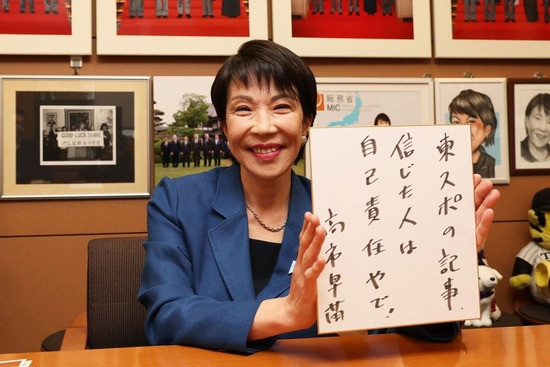 東スポの記事、
信じた人は
自己責任やで！
高市早苗
総務省
MIC
GOOD LUCK SANAE